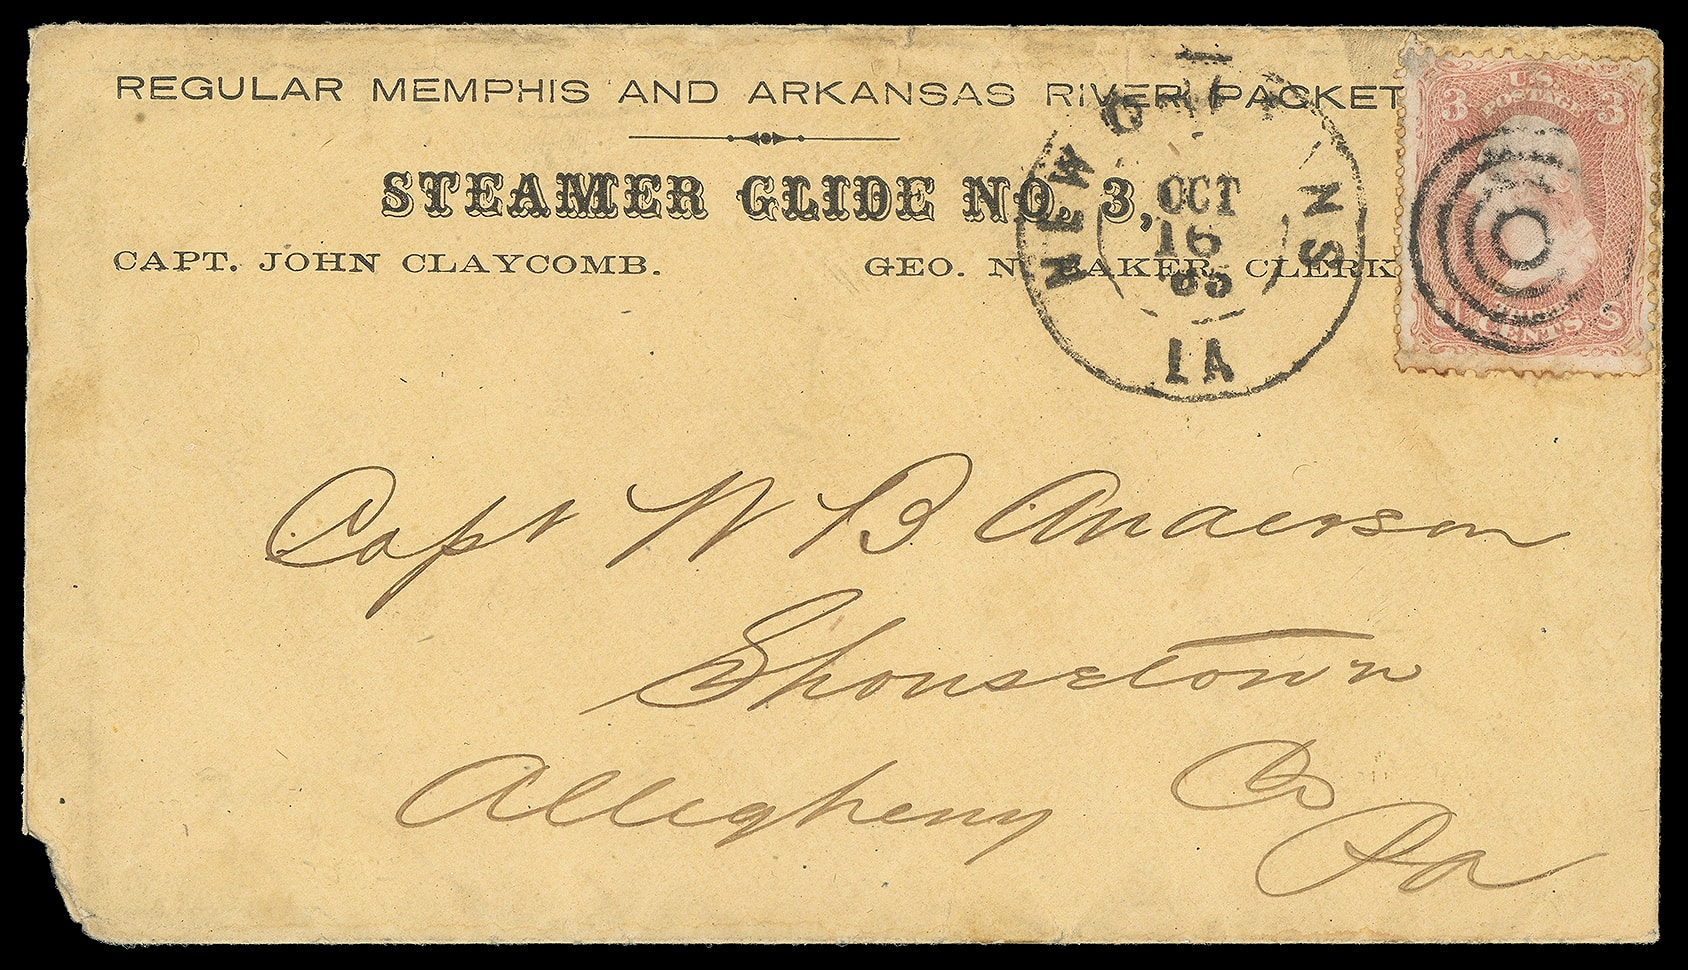 REGULAR MEMPHIS AND ARKANSAS RIVER PACKET
STEAMER GLIDE NO. 3,
CAPT. JOHN CLAYCOMB.
GEO. N. BAKER, CLERK
NEW O NS
OCT
16
65
LA
U.S.
POSTAGE
3 3
CENTS
Capt W B Anderson
Shousetown
Allegheny Co
Pa